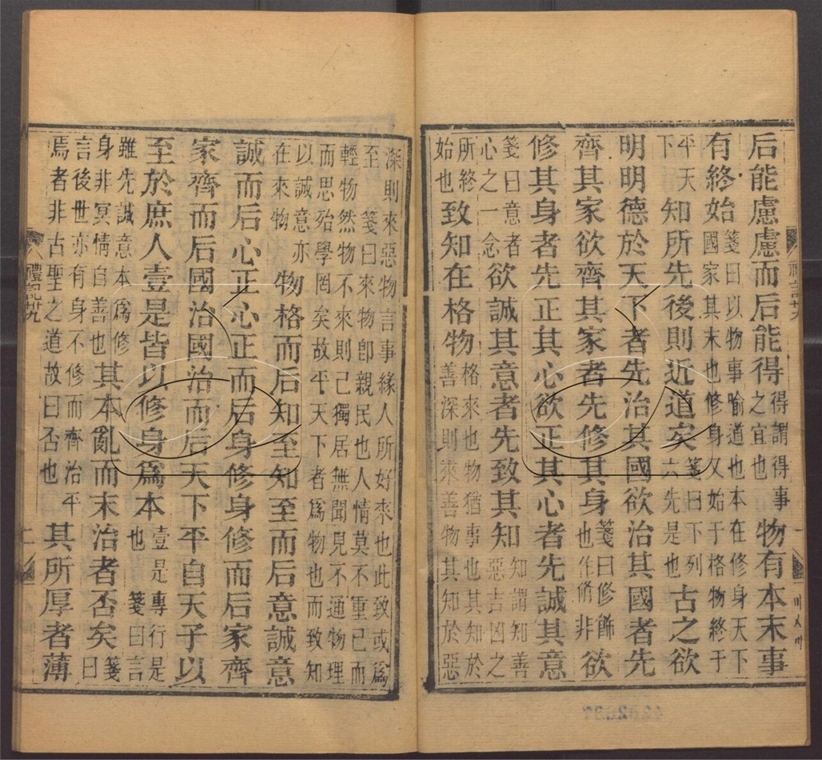 后能慮慮而后能得得謂得事之宜也物有本末事
有終始箋曰以物事喻道也本在修身天下國家其末也修身又始于格物終于
平天下知所先後則近道矣箋曰下列六先是也古之欲
明明德於天下者先治其國欲治其國者先
齊其家欲齊其家者先修其身箋曰修飾也作脩非欲
修其身者先正其心欲正其心者先誠其意
箋曰意者心之一念欲誠其意者先致其知知謂知善惡吉凶之
所終始也致知在格物格來也物猶事也其知於善深則來善物其知於惡
深則來惡物言事緣人所好來也此致或爲至 箋曰來物卽親民也人情莫不重己而
輕物然物不來則己獨居無聞見不通物理而思殆學罔矣故平天下者爲物也而致知
以誠意亦在來物物格而后知至知至而后意誠意
誠而后心正心正而后身修身修而后家齊
家齊而后國治國治而后天下平自天子以
至於庶人壹是皆以修身爲本壹是專行是也 箋曰言
雖先誠意本爲修身非冥情自善也其本亂而末治者否矣箋曰
言後世亦有身不修而齊治平焉者非古聖之道故曰否也其所厚者薄